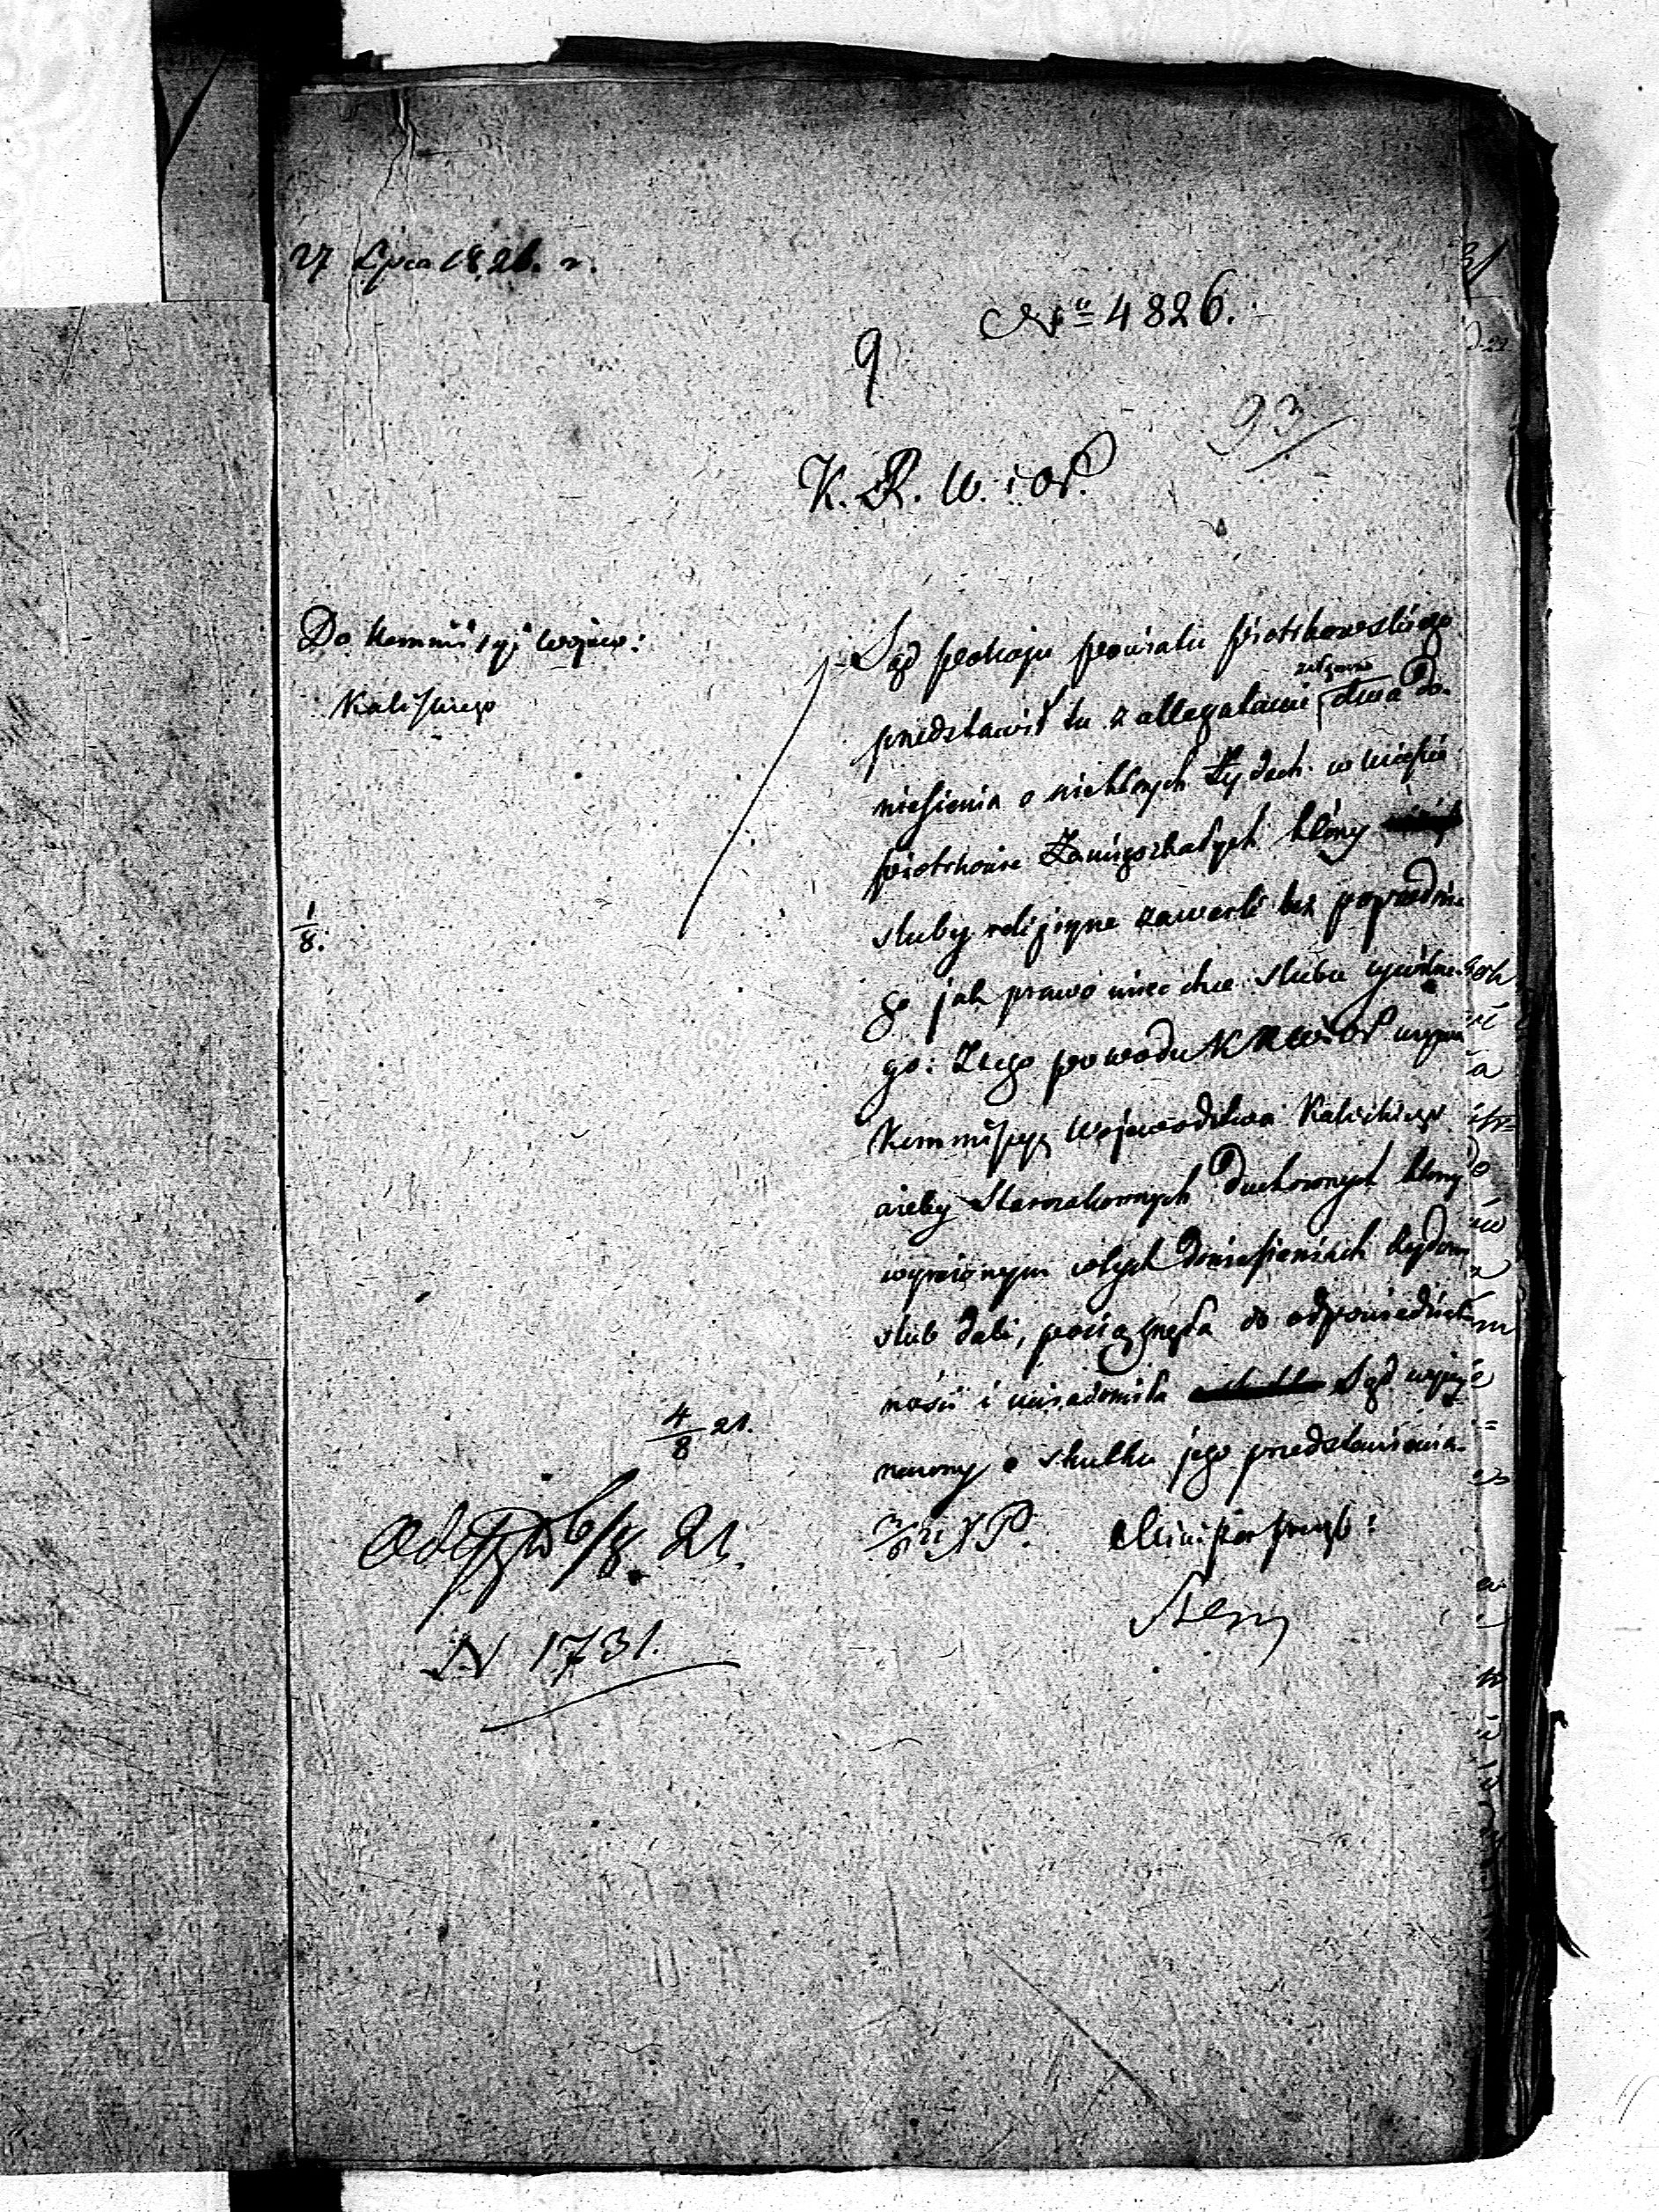 27 Lipca 1821. r.
No 4826.
9
93
K. R. W. i O P.
Do Kommissyi Wojew:
Kaliskiego
Sąd pokoju powiatu Piotrkowskiego
załączone
przedstawił tu z allegatami dwa do-
niesienia o niektórych Żydach w mieście
Piotrkowie zamięszkałych którzy
śluby religijne zawarli bez poprzednie
go jak prawo mieć chce ślubu cywilne
go: Z tego powodu K R W i O P wzywa
Kommissyą Województwa Kaliskiego
ażeby Starozakonnych Duchownych którzy
wyrażonym w tych doniesieniach Żydom
ślub dali, pociągnęła do odpowiedzial
ności i uwiadomiła Sąd wyżej
rzeczony o skutku jego przedstawienia.
1/8.
4/8 21.
6/8. 21.
N 1731.
Minister